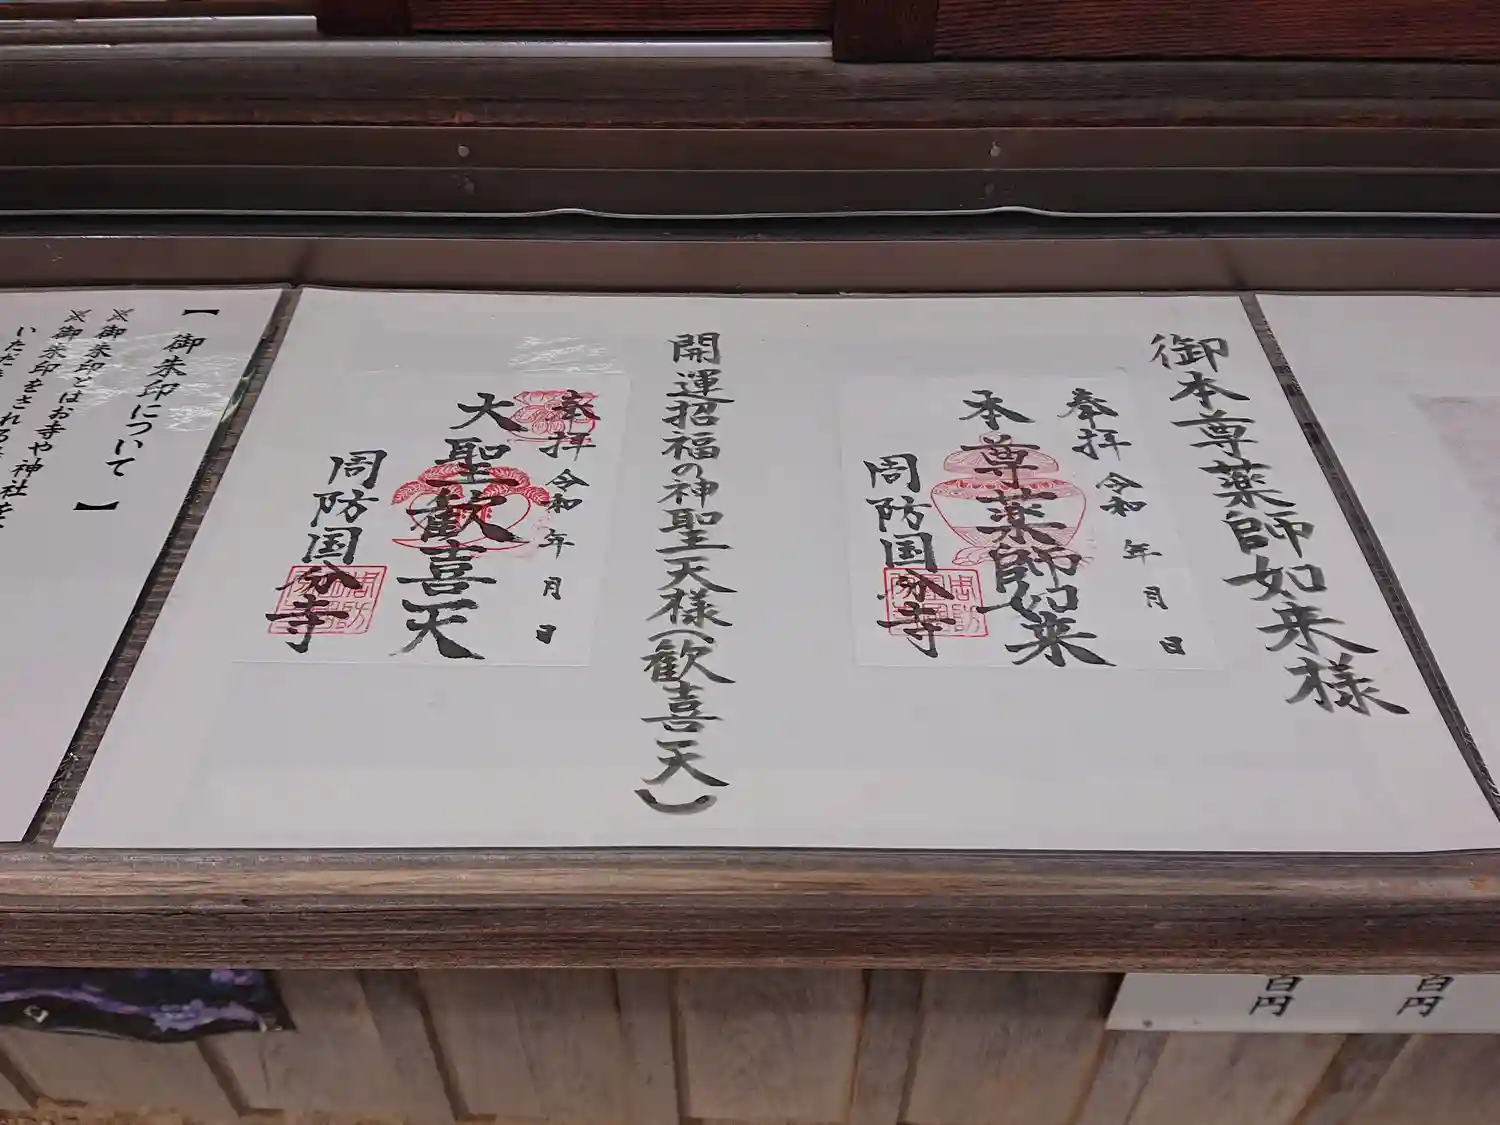 御本尊薬師如来様
奉拝 令和 年 月 日
本尊薬師如来
周防国分寺
開運招福の神聖天様(歓喜天)
奉拝 令和 年 月 日
大聖歓喜天
周防国分寺
【御朱印について】
※御朱印とはお寺や神社を
※御朱印をされる
いただ
百円
百円